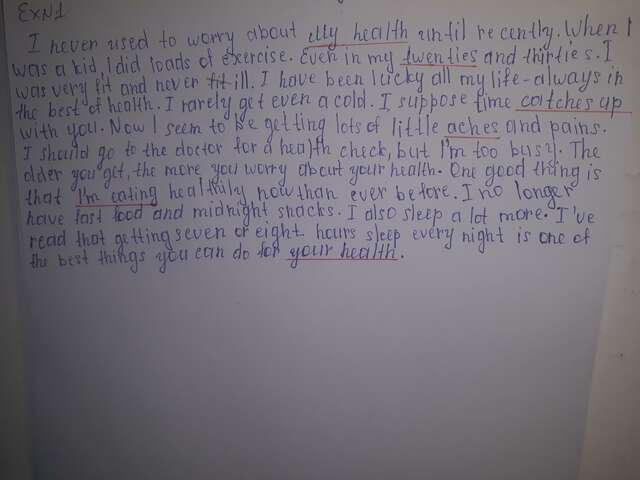 EXN1
I never used to worry about my health until recently. When I
was a kid, I did loads of exercise. Even in my twenties and thirties. I
was very fit and never fit ill. I have been lucky all my life - always in
the best of health. I rarely get even a cold. I suppose time catches up
with you. Now I seem to be getting lots of little aches and pains.
I should go to the doctor for a health check, but I'm too busy. The
older you get, the more you worry about your health. One good thing is
that I'm eating healthily now than ever before. I no longer
have fast food and midnight snacks. I also sleep a lot more. I've
read that getting seven or eight hours sleep every night is one of
the best things you can do for your health.